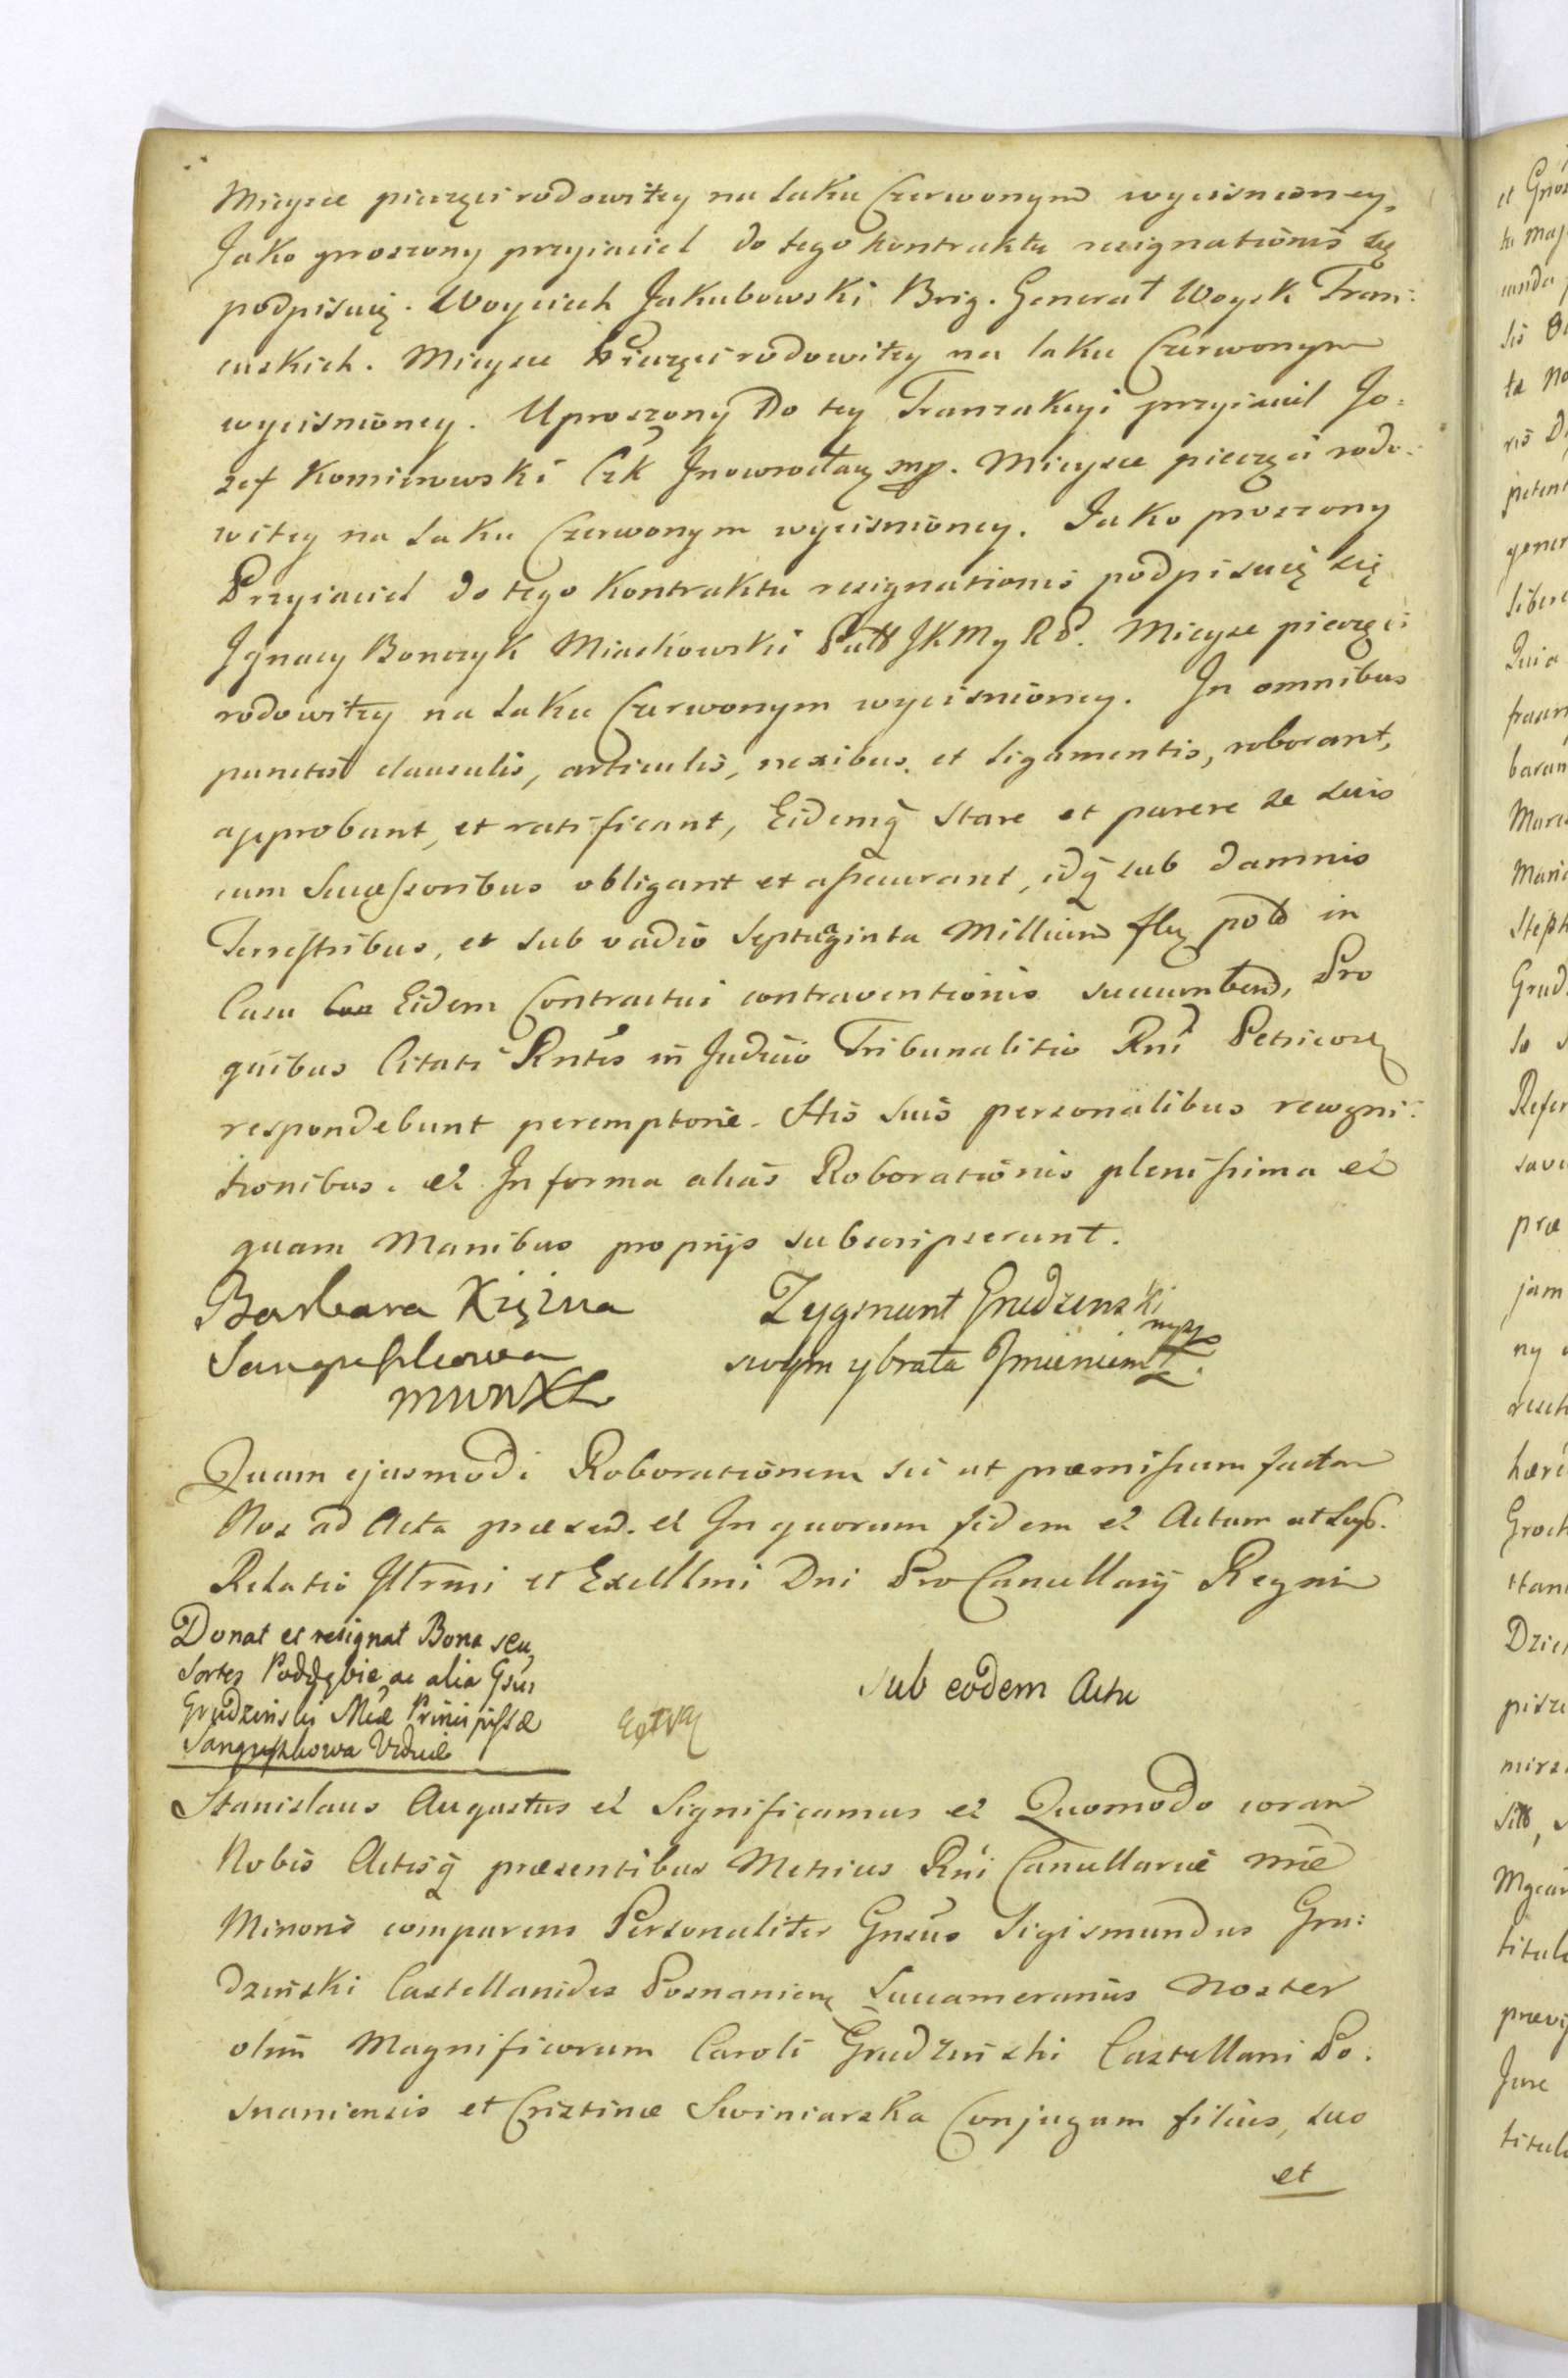 Mieysce pieczęci rodowitey na laku Czerwonym wyciśnioney,
Jako proszony przyiaciel do tego kontraktu resignationis się
podpisuię. Woyciech Jakubowski Bryg. Generał Woysk Fran:
cuskich. Mieysce Pieczęci rodowitey na laku Czerwonym
wyciśnioney. Uproszony Do tey Tranzakcyi przyiaciel Jo=
zef Komierowski Czk Jnowrocław mp. Mieysce pieczęci rodo:
witey na laku Czerwonym wyciśnioney. Jako proszony
Przyiaciel do tego Kontraktu resignationis podpisuię się
Jgnacy Bonczyk Miaskowski Putt JKMy RP. Mieysce pieczęci
rodowitey na laku Czerwonym wyciśnioney. Jn omnibus
punctis clausulis, articulis, nexibus, et ligamentis, roborant,
approbant, et ratificant, Eidemq́ stare et parere se suis
cum Successoribus obligant et assecurant, idq́ sub damnis
Terrestribus, et sub vadio Septuaginta Millium flr pold in
Casu Eidem Contractui contraventionis succumbend, Pro
quibus Citati Rntes in Judicio Tribunalitio Rni Petricov
respondebunt peremptorie. His suis personalibus recogni:
tionibus. et Jn forma alias Roborationis plenissima et
quam Manibus proprijs subscripserunt.
Barbara Xiężna Zygmunt Grudzinski mp
Sanguszkowa swoym y brata Jmieniem
MWWXL
Quam ejusmodi Roborationem sic ut præmissum factam
Nos ad Acta præsend. et Jn quorum fidem et Actum ut sup.
Relatio Jllrmi et Excellmi Dni ProCancellarij Regni
Donat et resignat Bona seu
Sortes Poddębie ac alia Gsus sub eodem Actu
Grudzinski Mæ Principissæ
Sanguszkowa Viduæ
Stanislaus Augustus et Significamus et Quomodo coram
Nobis Actisq́ præsentibus Metrices Rni Cancellariæ nræ
Minoris comparens Personaliter Gnsus Sigismundus Gru:
dzinski Castellanides Posnanien Succamerarius Noster
olim Magnificorum Caroli Grudzinski Castellani Po:
snaniensis et Cristinæ Swiniarska Conjugum filius, suo
et